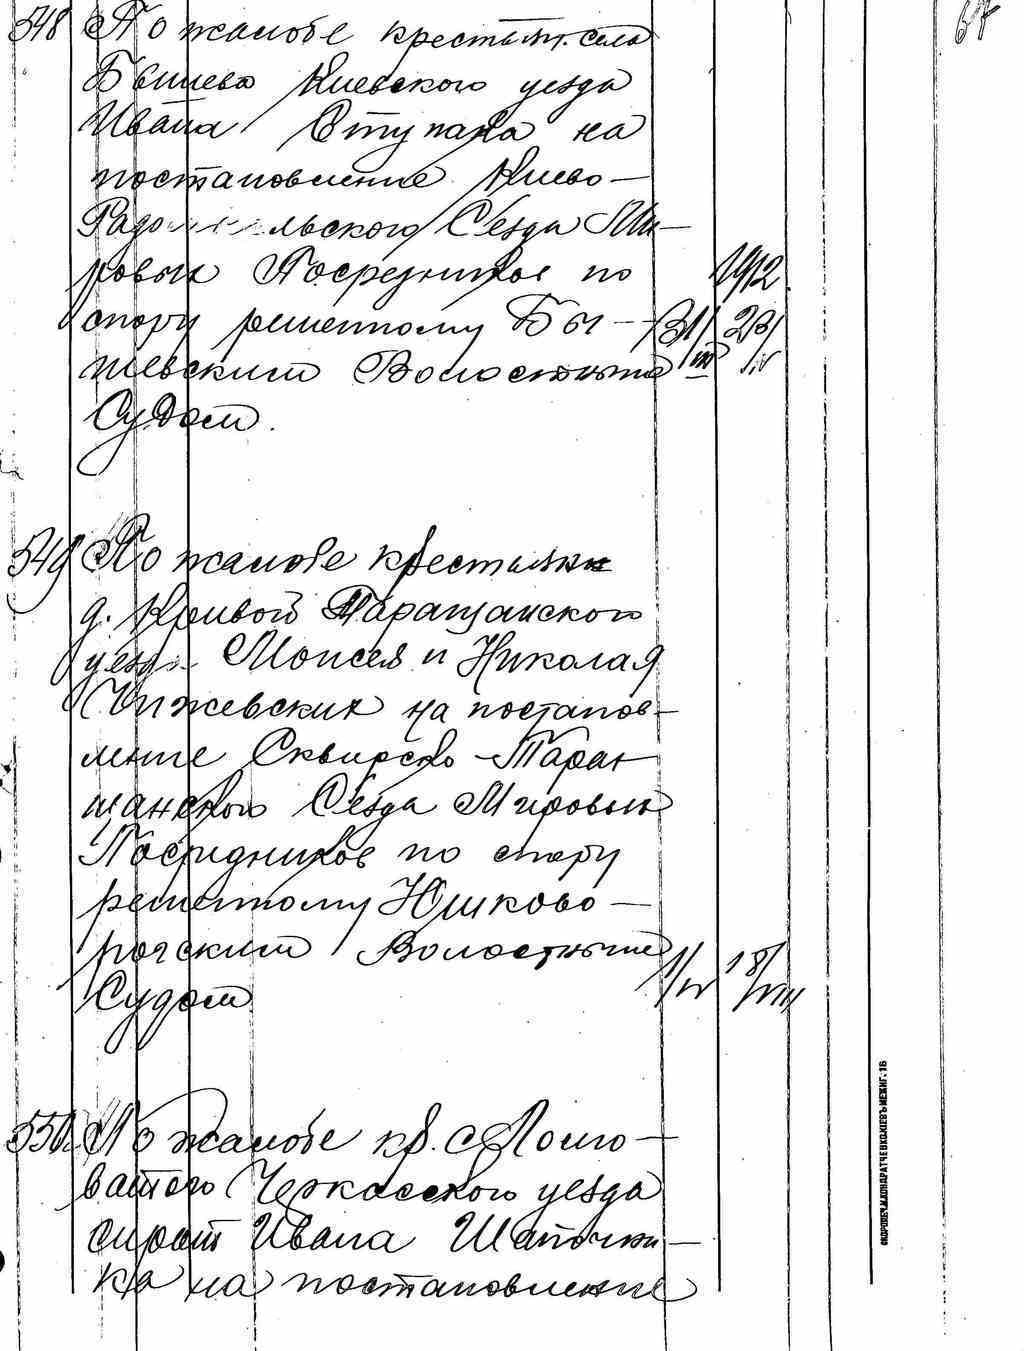 67
548 По жалобе крестьян. села
Бышева Киевского уезда
Ивана Ступака на
постановление Киево-
Радомысльского Съезда Ми-
ровых Посредников по
1912
спору решенному Бы- 31/III 23/IV
шевским Волостным
Судом.
549 По жалобе крестьян
д. Кривой Таращанского
уезда Моисея и Николая
Чижевских на постанов-
ление Сквирско-Тара-
щанского Съезда Мировых
Посредников по спору
решенному Юшково-
рогским Волостным 1/IV 18/VIII
Судом
550. По жалобе кр. с
ватого Черкасского уезда
сирот Ивана Шапочни-
ка на постановление